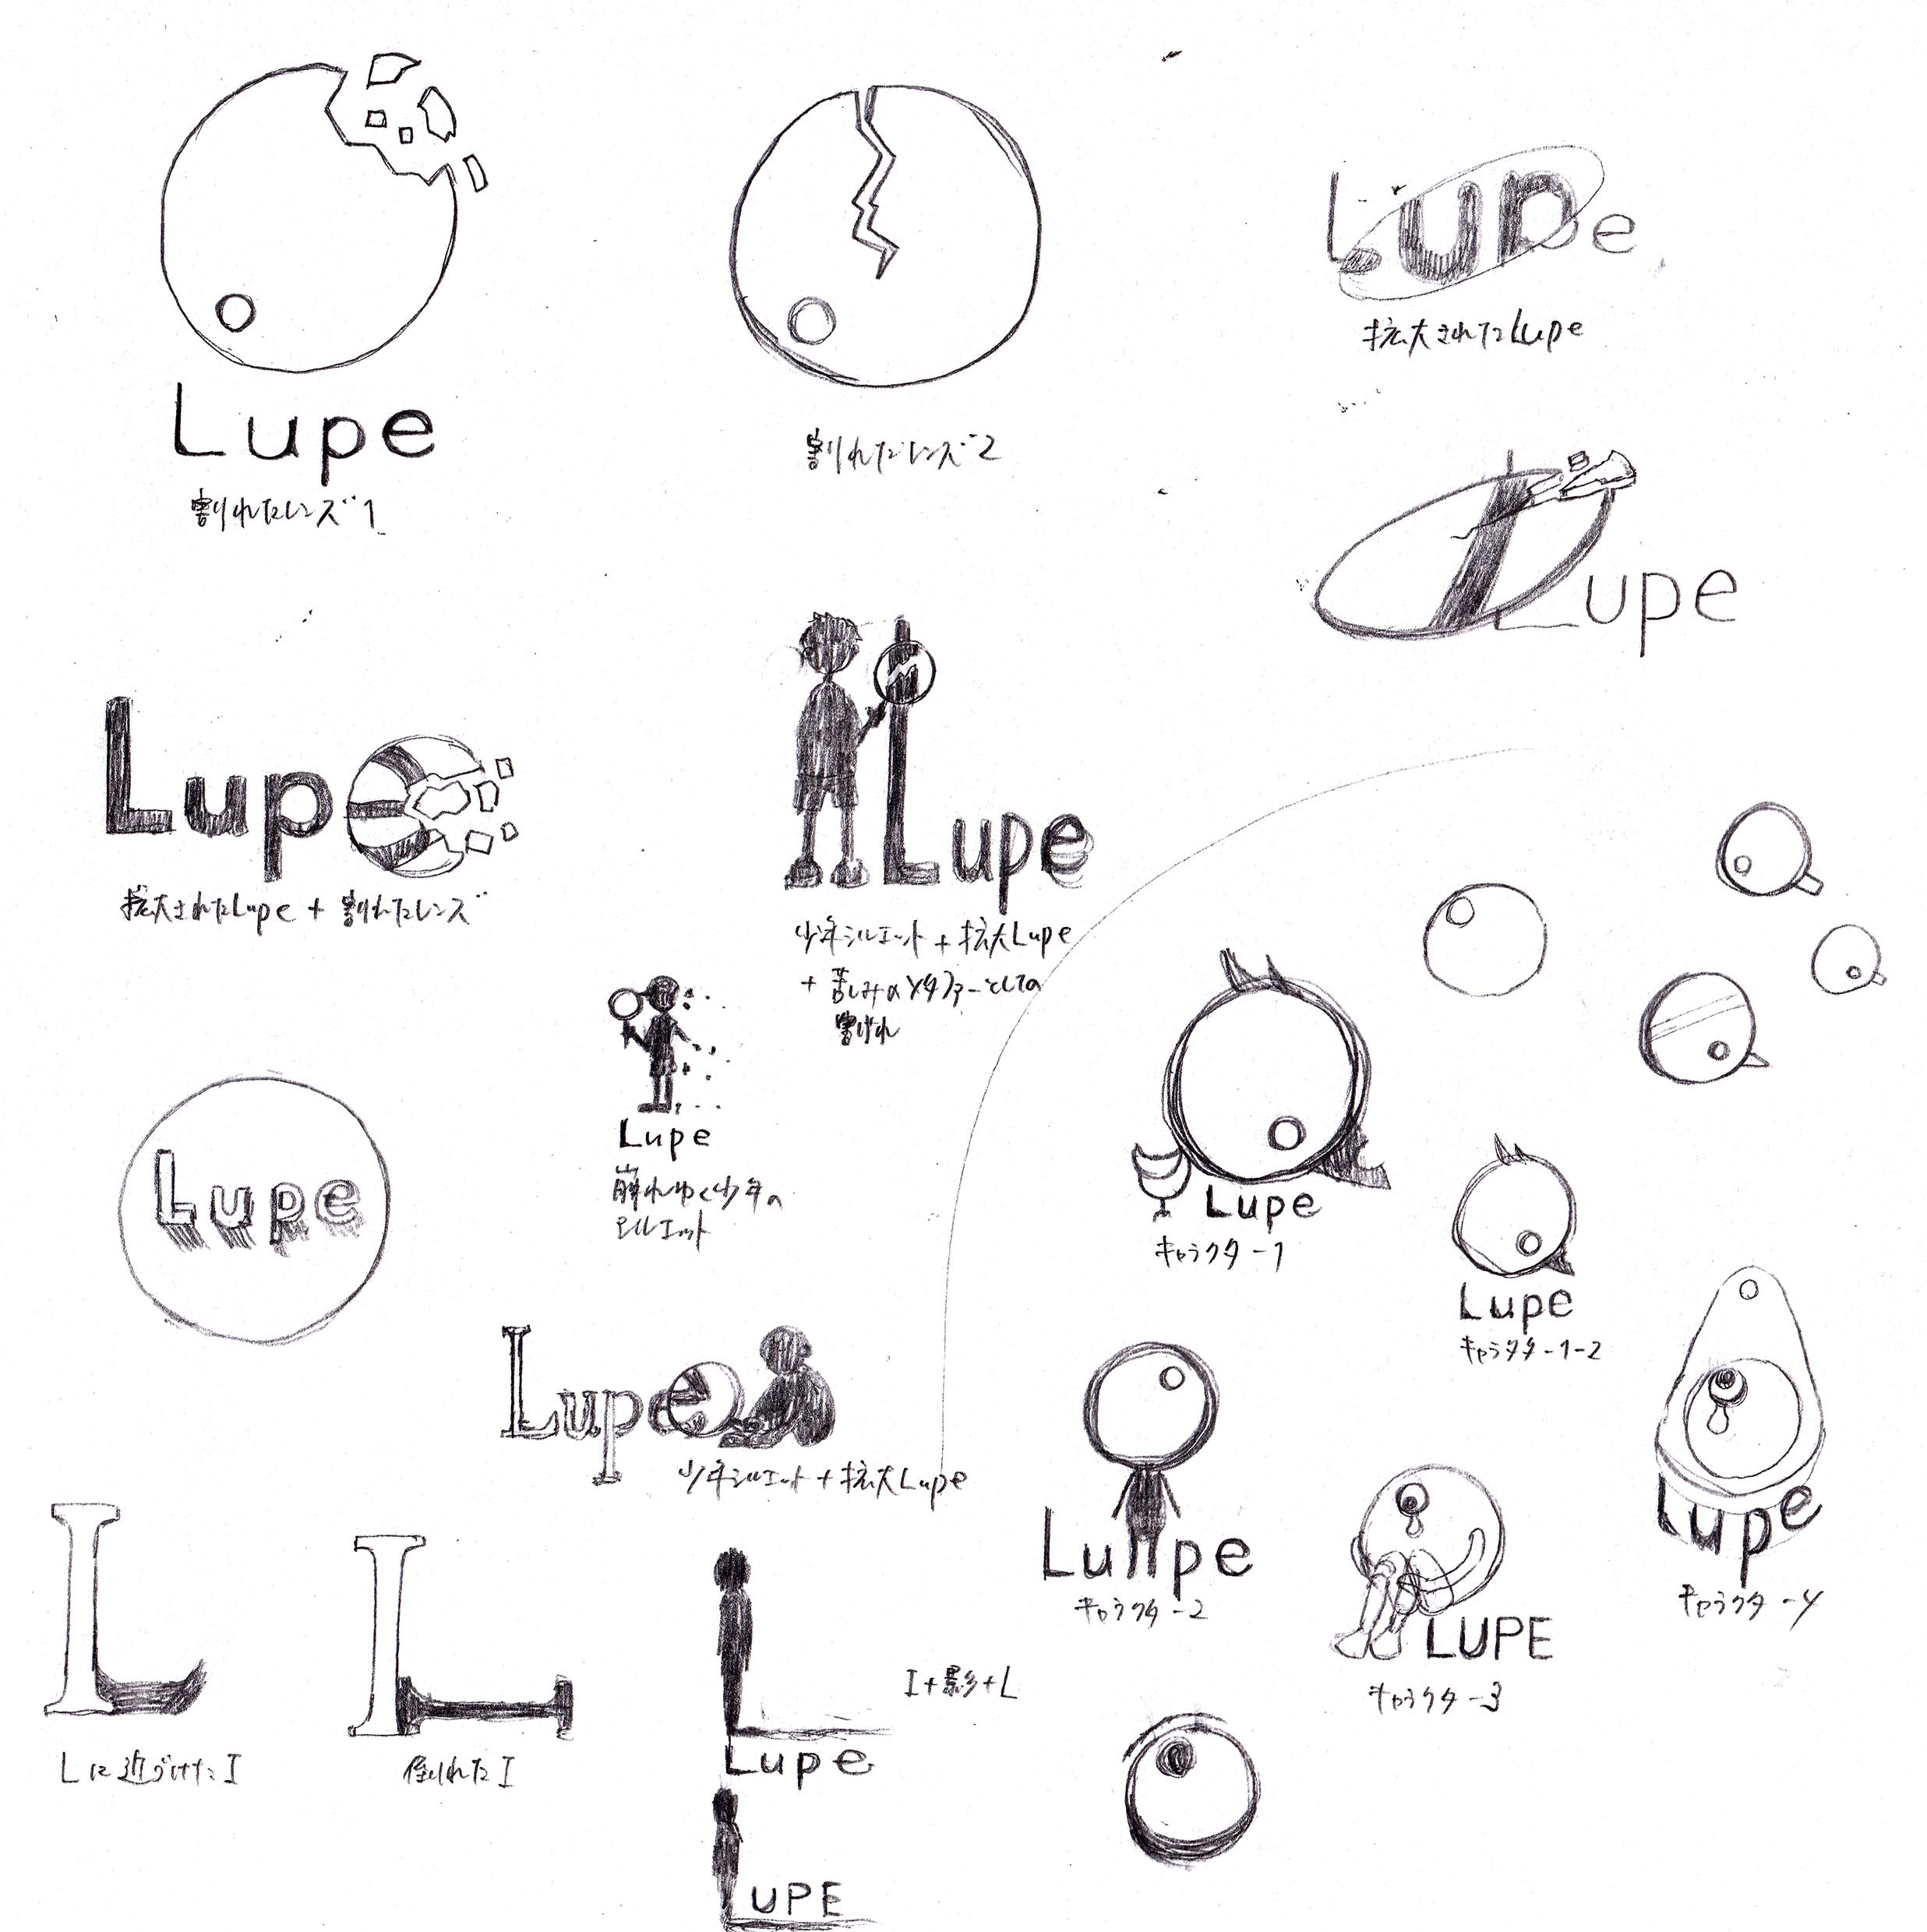 Lupe
割れたレンズ1
割れたレンズ2
Lupe
拡大されたLupe
Lupe
Lupe
拡大されたLupe + 割れたレンズ
Lupe
少年シルエット + 拡大Lupe
+ 苦しみのメタファーとしての
割れ
Lupe
崩れゆく少年の
シルエット
Lupe
Lupe
少年シルエット + 拡大Lupe
Lupe
キャラクター1
Lupe
キャラクター1-2
Lupe
キャラクター2
LUPE
キャラクター3
Lupe
キャラクター4
L
Lに近づけたI
L
倒れたI
I+影+L
Lupe
LUPE